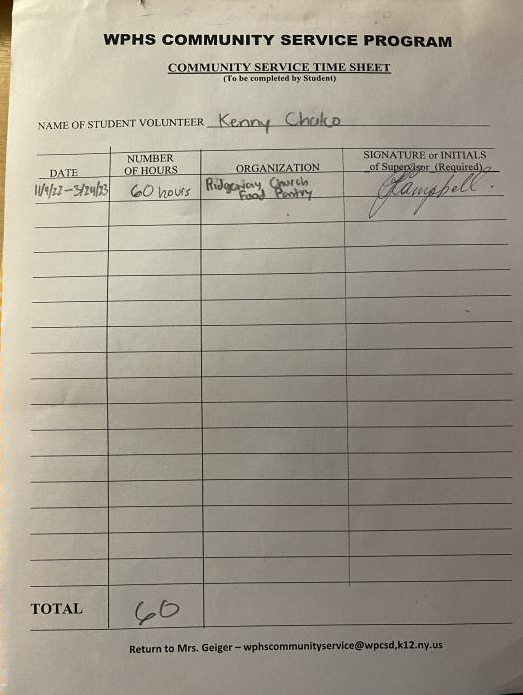 WPHS COMMUNITY SERVICE PROGRAM
COMMUNITY SERVICE TIME SHEET
(To be completed by Student)
NAME OF STUDENT VOLUNTEER Kenny Chako
DATE
NUMBER
OF HOURS
ORGANIZATION
SIGNATURE or INITIALS
of Supervisor (Required)
11/9/22-3/24/23
60 hours
Ridgeway Church
Food Pantry
JCampbell.
TOTAL
60
Return to Mrs. Geiger – wphscommunityservice@wpcsd,k12.ny.us